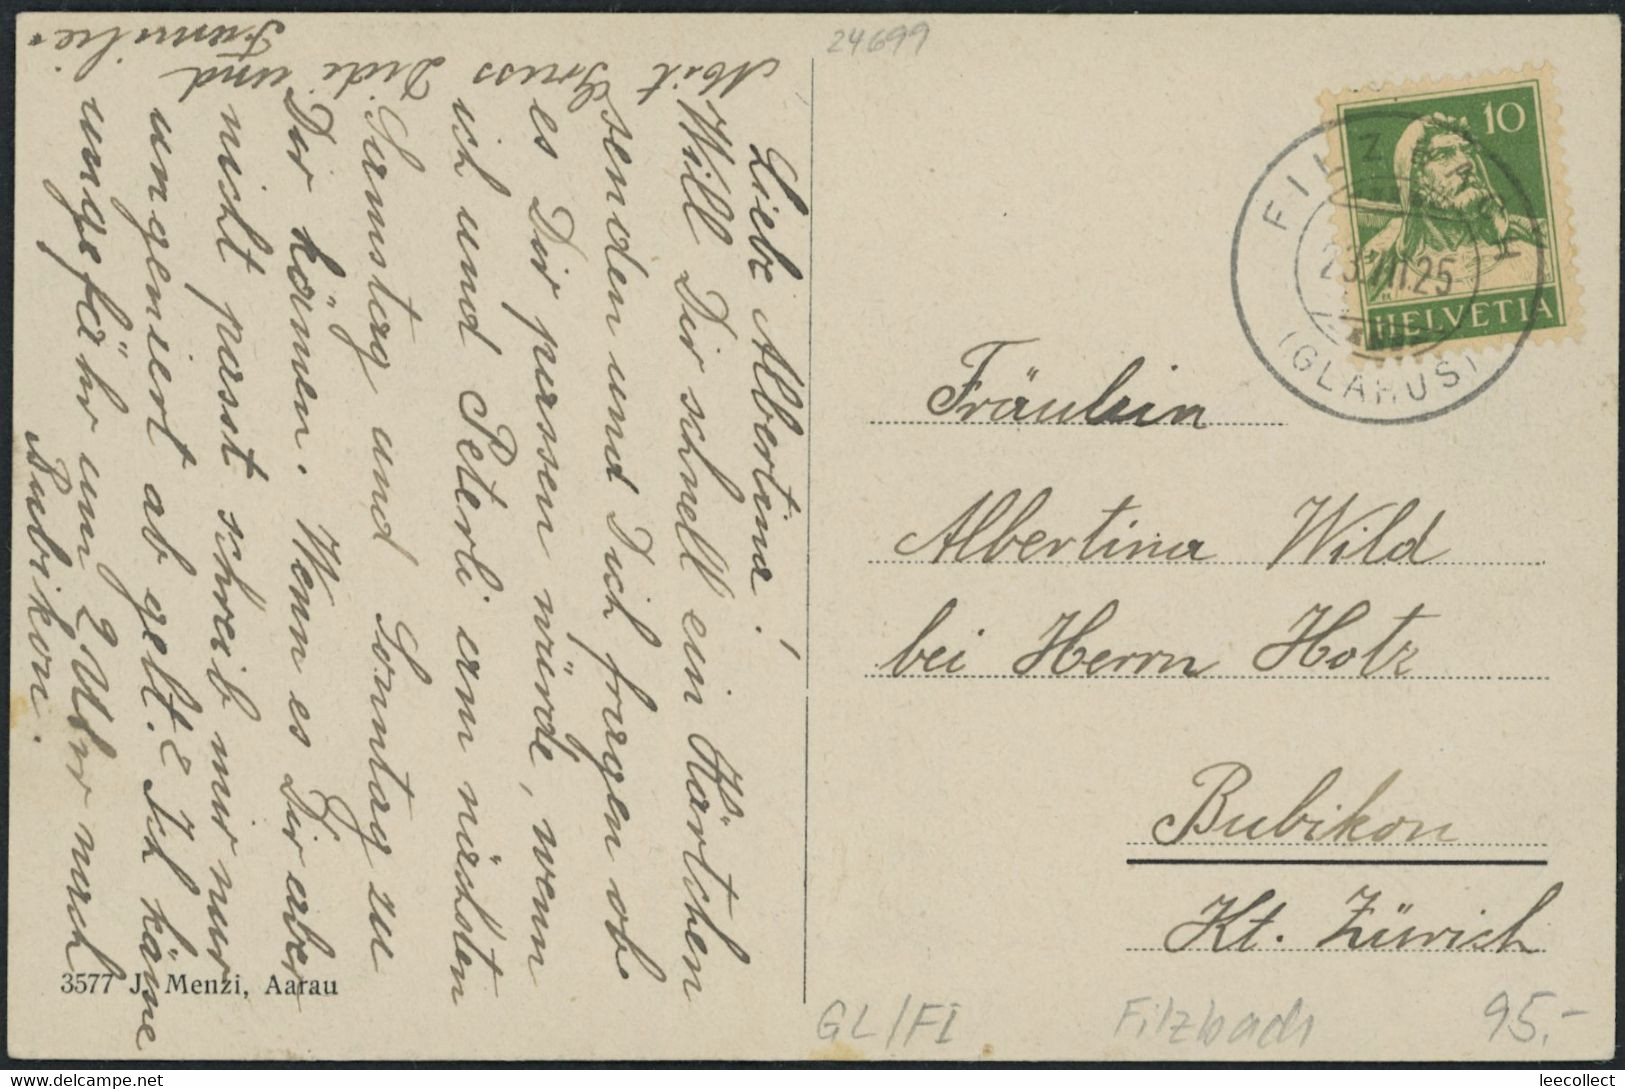 Liebe Albertina!
Will Dir schnell ein Kärtchen
senden und Dich fragen ob
es Dir passen würde, wenn
ich und Peterli am nächsten
Samstag und Sonntag zu
Dir kömen. Wenn es Dir aber
nicht passt schreib mir nur
ungeniert ab gelt? Ich käme
ungefähr um 2 Uhr nach
Bubikon.
Mit Gruss Didi und
Familie.
3577 J. Menzi, Aarau
24699
10
HELVETIA
FILZBACH
23. VII. 25
(GLARUS)
Fräulein
Albertina Wild
bei Herrn Hotz
Bubikon
Kt. Zürich
GL/FI Filzbach 95.-
leecollect